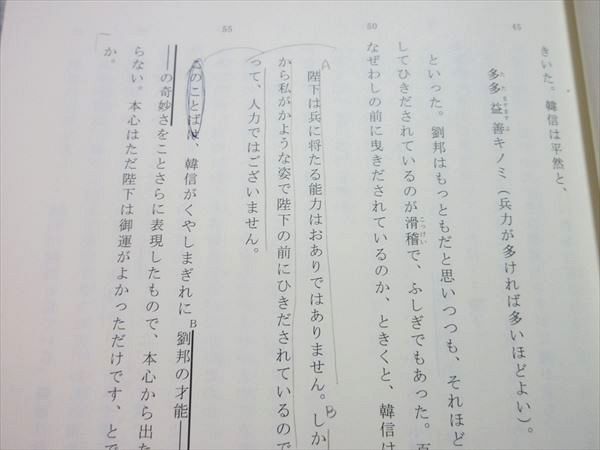 45
50
55
きいた。韓信は平然と、
多多益善キノミ（兵力が多ければ多いほどよい）。
たたますますよ
といった。劉邦はもっともだと思いつつも、それほど
してひきだされているのが滑稽で、ふしぎでもあった。百
こっけい
なぜわしの前に曳きだされているのか、ときくと、韓信は
A
陛下は兵に将たる能力はおありではありません。しか
B
から私がかような姿で陛下の前にひきだされているので
って、人力ではございません。
このことばは、韓信がくやしまぎれにB劉邦の才能
の奇妙さをことさらに表現したもので、本心から出た
らない。本心はただ陛下は御運がよかっただけです、とで
か。